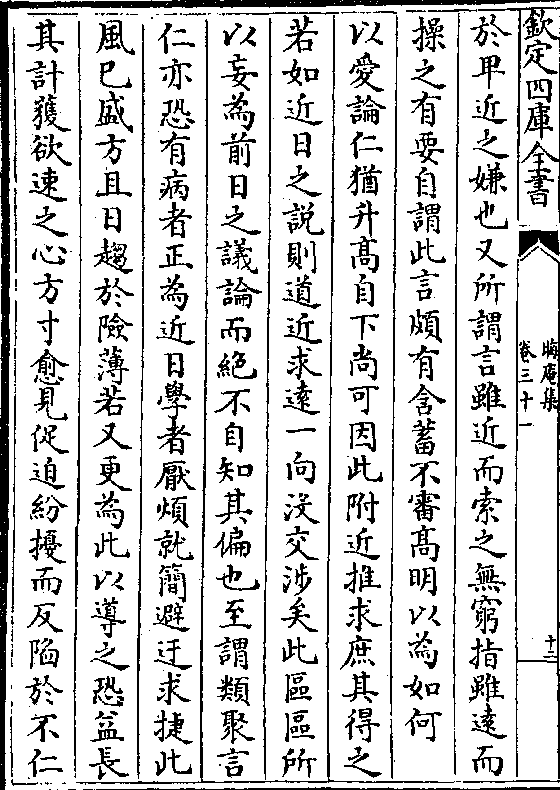 欽定四庫全書
晦庵集
卷三十一
十二
於卑近之嫌也又所謂言雖近而索之無窮指雖遠而
操之有要自謂此言頗有含蓄不審高明以為如何
以愛論仁猶升髙自下尚可因此附近推求庶其得之
若如近日之說則道近求逺一向沒交涉矣此區區所
以妄為前日之議論而絶不自知其偏也至謂類聚言
仁亦恐有病者正為近日學者厭煩就簡避迂求捷此
風已盛方且日趨於險薄若又更為此以導之恐益長
其計獲欲速之心方寸愈見促迫紛擾而反陷於不仁